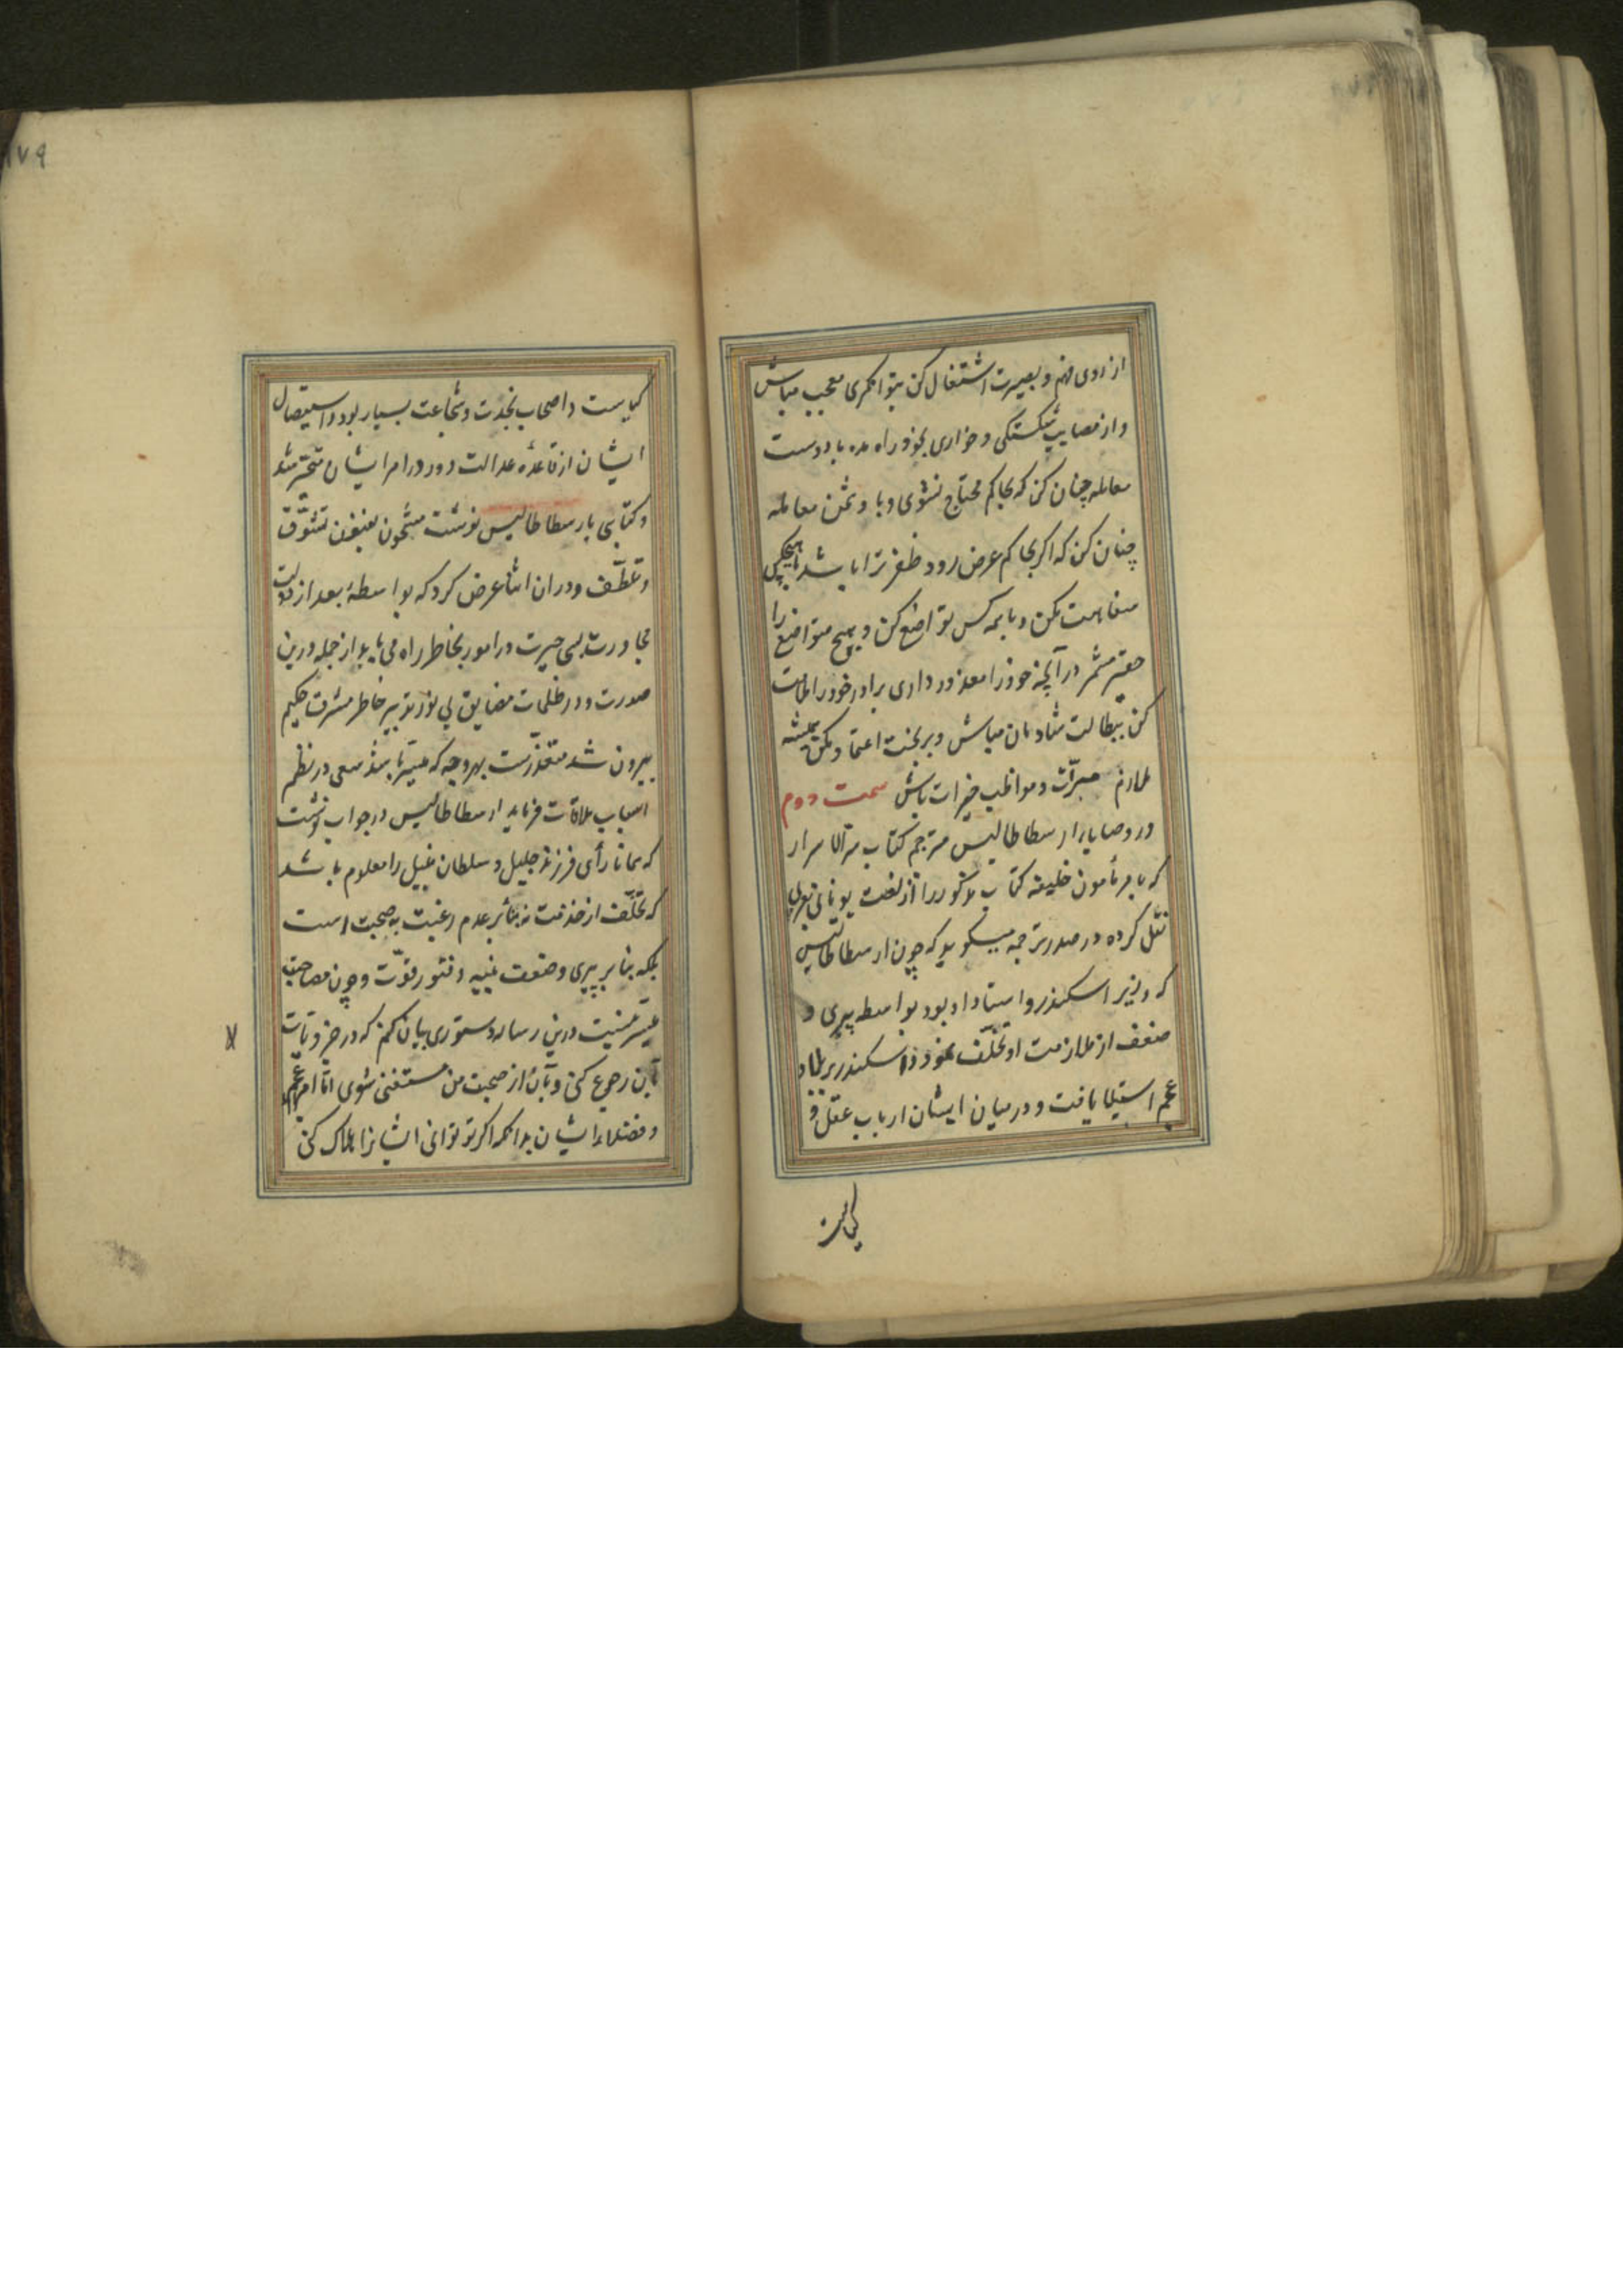 از روی فهم و بصیرت اشتغال کن بتوانکری معجب مباش
و از مصایب شکستکی و خواری بخود راه مده با دوست
معامله چنان کن که بحاکم محتاج نشوی و با دشمن معامله
چنان کن که اکر بحاکم عرض رود ظفر ترا باشد با هیچکس
سفاهت مکن و با همه کس تواضع کن و هیچ متواضع را
حقیر مشمر در آنچه خود را معذور داری برادر خود را ملامت
مکن ببطالت شادمان مباش و بر بخت اعتماد مکن همیشه
ملازم مبرّات و مواظب خیرات باش سمت دوم
در وصایا ارسطاطالیس مترجم کتاب سرّ الاسرار
که بامر مأمون خلیفه کتاب مذکور را از لغت یونانی بعربی
نقل کرده در صدر ترجمه میکوید که چون ارسطاطالیس
که وزیر اسکندر و استاد او بود بواسطه پیری و
ضعف از ملازمت او تخلّف نمود و اسکندر بر بلاد
عجم استیلا یافت و در میان ایشان ارباب عقل و
کیاست
۱۷۹
کیاست و اصحاب نجدت و شجاعت بسیار بود و استیصال
ایشان از قاعده عدالت دور در امر ایشان متحیّر شد
و کتابی بارسطاطالیس نوشت مشحون بفنون تشوّق
و تعطّف و در ان اثنا عرض کرد که بواسطهٔ بعد از دولت
مجاورت بسی حیرت در امور بخاطر راه می یابد از جمله درین
صورت و در ظلمات مضایق بی نور تدبیر خاطر مشرف حکیم
بیرون شد متعذّرست بهر وجه که میسّر باشد سعی در نظم
اسباب ملاقات فرماید ارسطاطالیس در جواب نوشت
که همانا رأی فرزند جلیل و سلطان نبیل را معلوم باشد
که تخلّف از خدمت نه بنا بر عدم رغبت بصحبت است
بلکه بنا بر پیری و ضعف بنیه و فتور قوّت و چون مصاحبت
میسّر نیست درین رساله دستوری بیان کنم که در جزویات
بآن رجوع کنی و بآن از صحبت من مستغنی شوی امّا امر عجم
و فضلاء ایشان بدانکه اکر تو توانی ایشانرا هلاک کنی